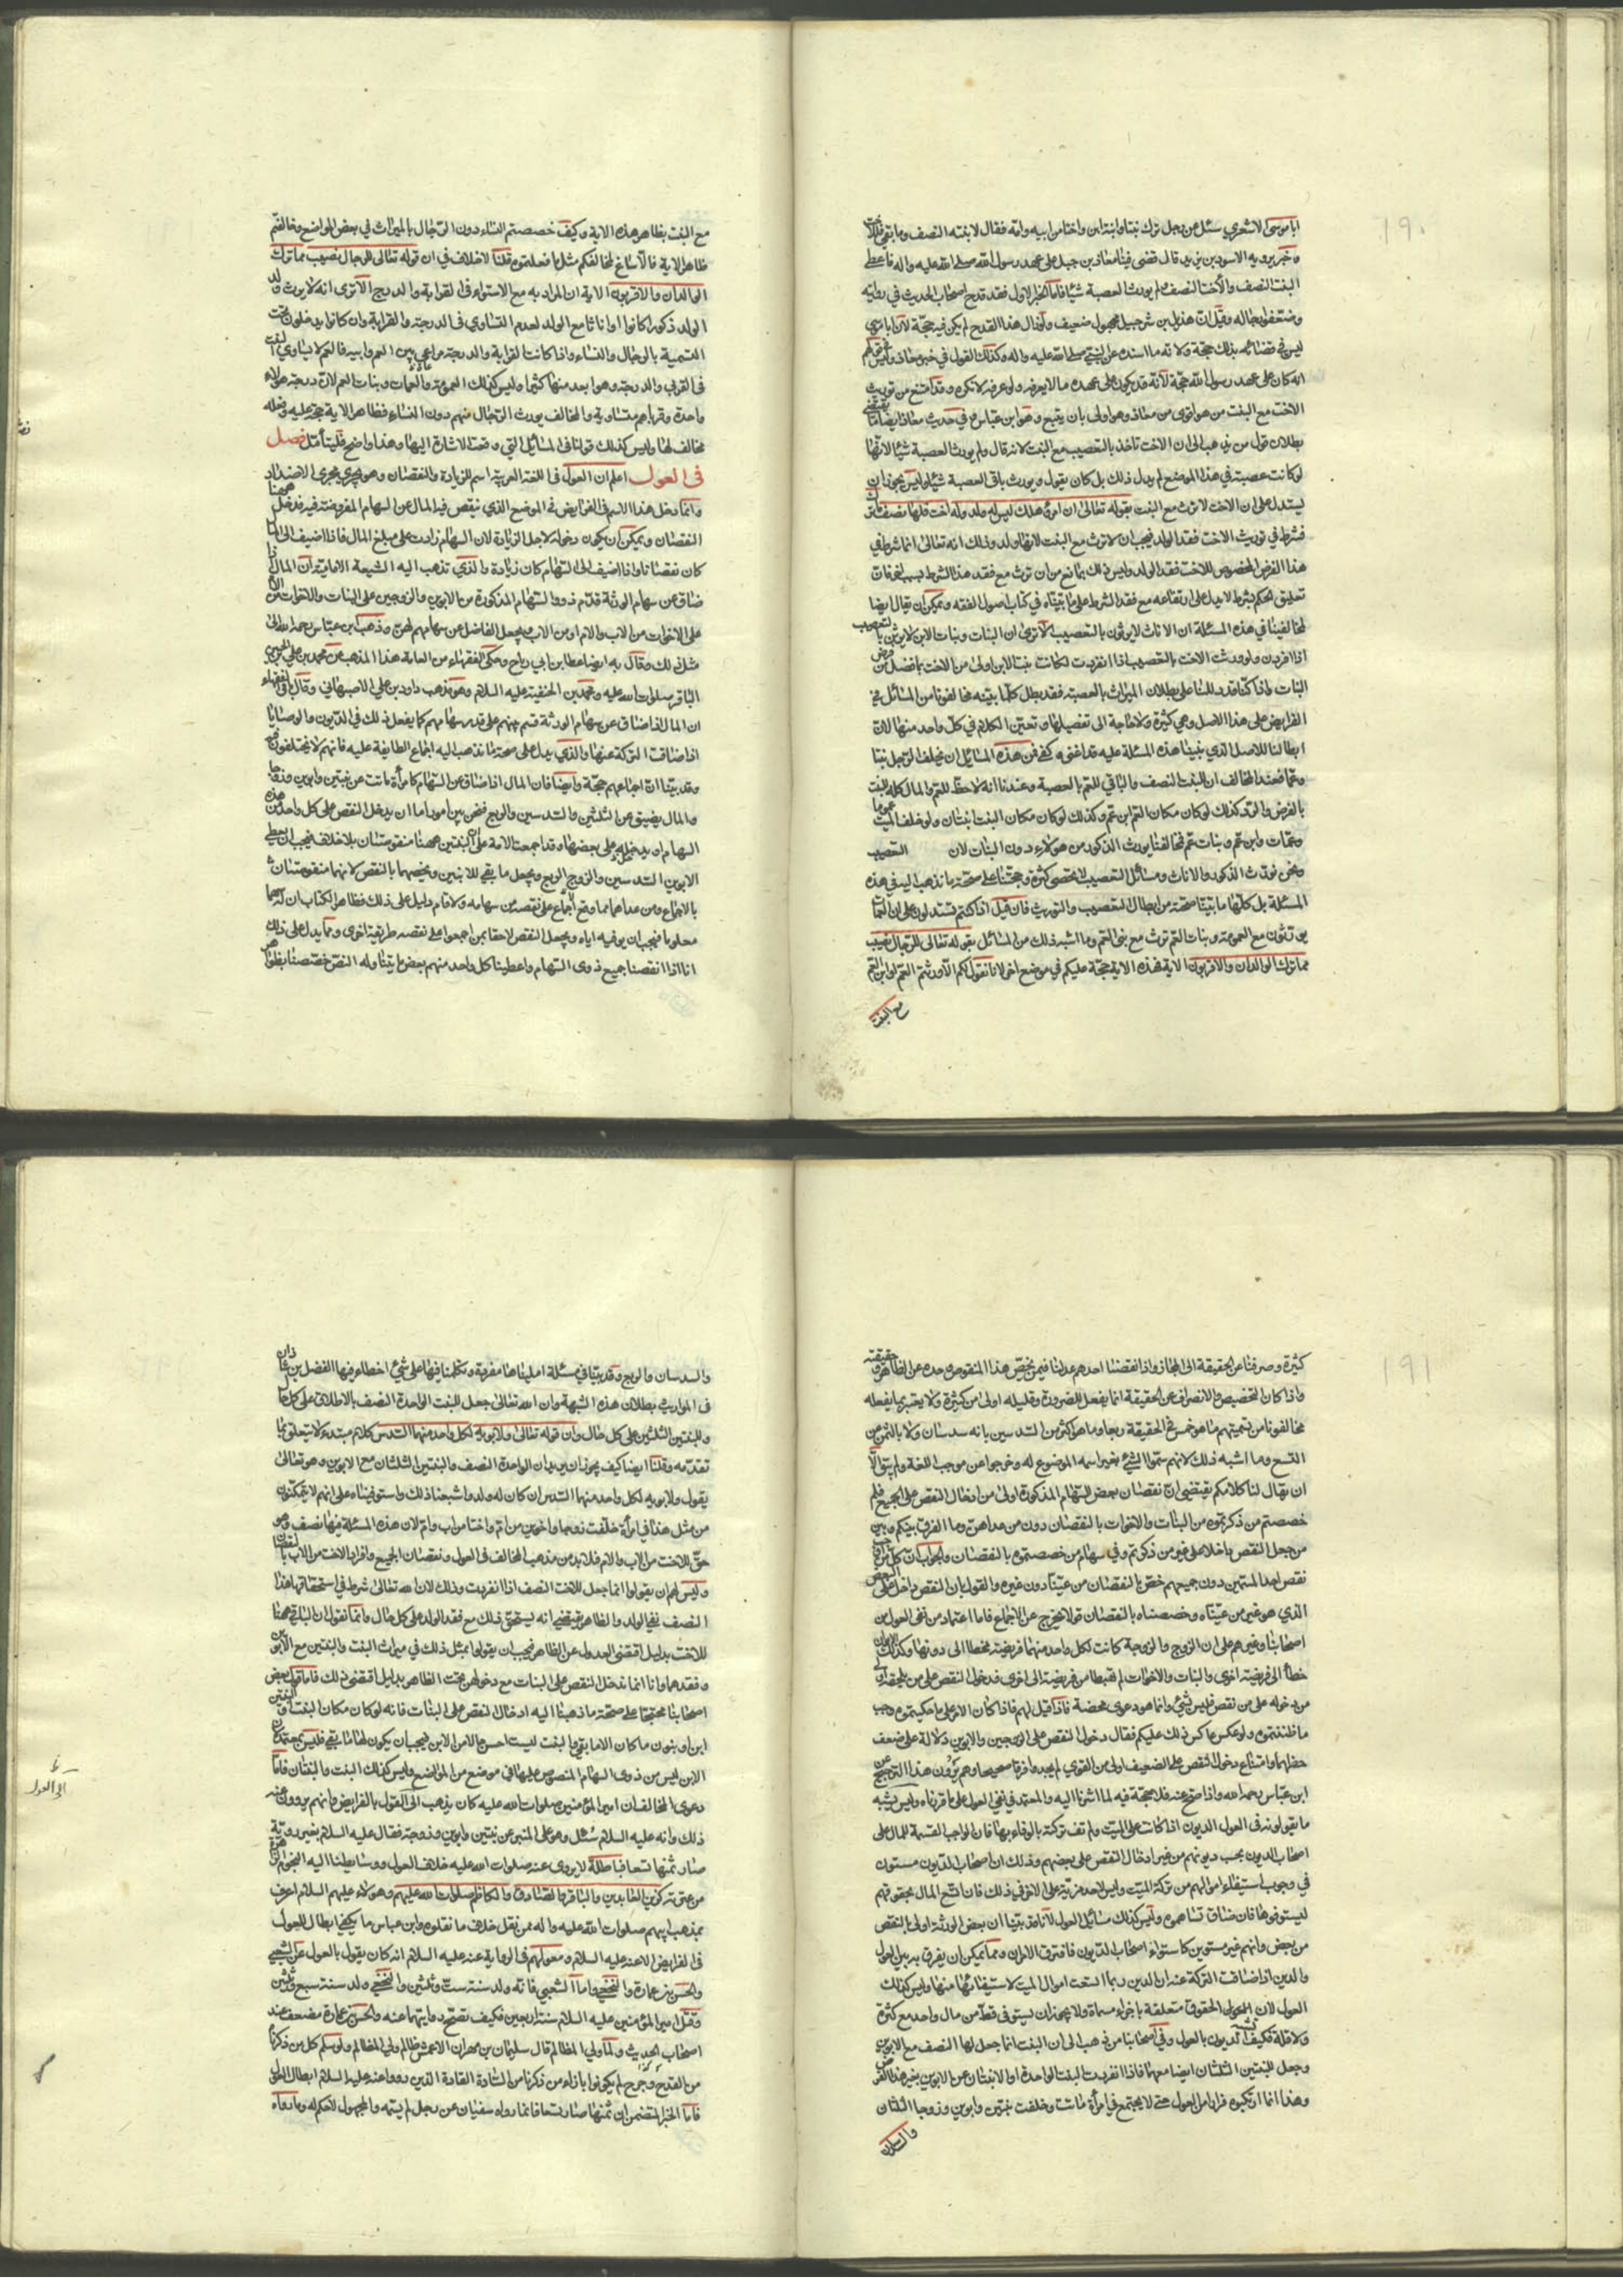 ١٩٠
ابا موسى الاشعري سئل عن رجل ترك بنتا وابنة ابن واختا من ابيه وامه فقال لابنته النصف وما بقي فللاخت
وخبر يرويه الاسود بن يزيد قال قضى فينا معاذ بن جبل على عهد رسول الله صلى الله عليه واله فاعطى
البنت النصف والاخت النصف ولم يورث العصبة شيئا فاما الخبر الاول فقد قدح اصحاب الحديث في روايته
وضعفوا رجاله وقيل ان هذيل بن شرحبيل مجهول ضعيف ولو زال هذا القدح لم يكن فيه حجة لان ابا موسى
ليس في قضائه بذلك حجة ولانه ما اسنده عن النبي صلى الله عليه واله وكذلك القول في خبر معاذ وليس في قولهم
انه كان على عهد رسول الله حجة لانه قد يكون على عهده ما لا يعرفه ولو عرفه لانكره وقد امتنع من توريث
الاخت مع البنت من هو اقوى من معاذ وهو اولى بان يتبع وهو ابن عباس وفي حديث معاذ ايضا ما يقتضي
بطلان قول من يذهب الى ان الاخت تاخذ بالتعصيب مع البنت لانه قال ولم يورث العصبة شيئا لانها
لو كانت عصبة في هذا الموضع لم يقل ذلك بل كان يقول ولم يورث باقي العصبة شيئا وليس يجوز ان
يستدل على ان الاخت لا ترث مع البنت بقوله تعالى ان امرؤ هلك ليس له ولد وله اخت فلها نصف ما ترك
فشرط في توريث الاخت فقد الولد فيجب ان لا ترث مع البنت لانها ولد وذلك انه تعالى انما شرط في
هذا الفرض المخصوص للاخت فقد الولد وليس ذلك بمانع من ان ترث مع فقد هذا الشرط بسبب اخر فان
تعليق الحكم بشرط لا يدل على ارتفاعه مع فقد الشرط على ما بيناه في كتاب اصول الفقه ويمكن ان يقال ايضا
لمخالفينا في هذه المسئلة ان الاناث لا يرثون بالتعصيب الا ترى ان البنات وبنات الابن لا يرثن بالتعصيب
اذا انفردن ولو ورثت الاخت بالتعصيب اذا انفردت لكانت بنت الابن اولى من الاخت بما فضل عن فرض
البنات واذا كنا قد دللنا على بطلان الميراث بالعصبة فقد بطل كلما يبنيه مخالفونا من المسائل في
الفرايض على هذا الاصل وهي كثيرة ولا حاجة الى تفصيلها وتعيين الكلام في كل واحد منها لان
ابطالنا للاصل الذي بنيت هذه المسئلة عليه قد اغنى وكفى فمن هذه المسائل ان يخلف الرجل بنتا
وعما فعند المخالف ان للبنت النصف والباقي للعم بالعصبة وعندنا انه لا حظ للعم والمال كله للبنت
بالفرض والرد كذلك لو كان مكان العم ابن عم وكذلك لو كان مكان البنت ابنتان ولو خلف الميت عموما
وعمات وابن عم وبنات عم فمخالفنا يورث الذكور من هؤلاء دون البنات لان التعصيب
ونحن نورث الذكور والاناث ومسائل التعصيب لا تحصى كثرة وحجتنا على صحة ما نذهب اليه في هذه
المسئلة بل كلها ما بيناه صحته من ابطال التعصيب والتوريث فان قيل اذا كنتم تستدلون على ان العمات
يرثون مع العمومة وبنات العم ترث مع بني العم وما اشبه ذلك من المسائل بقوله تعالى للرجال نصيب
مما ترك الوالدان والاقربون الاية فهذه الاية حجة عليكم في موضع اخر لانا نقول لكم الا ورثتم العم او ابن العم
مع البنت
مع البنت بظاهر هذه الاية وكيف خصصتم النساء دون الرجال بالميراث في بعض المواضع وخالفتم
ظاهر الاية فالا ساغ لمخالفكم مثل ما فعلتموه قلنا لا خلاف في ان قوله تعالى للرجال نصيب مما ترك
الوالدان والاقربون الاية ان المراد به مع الاستواء في القرابة والدرج الا ترى انه لا يورث ولد
الولد ذكورا كانوا او اناثا مع الولد لعدم التساوي في الدرجة والقرابة وان كانوا يدخلون تحت
التسمية بالرجال والنساء واذا كانت القرابة والدرجة مراعى بين العم وابيه فالعم لا يساوي البنت
في القربى والدرجة وهو ابعد منها كثيرا وليس كذلك العمومة والعمات وبنات العم لان درجة هؤلاء
واحدة وقرباهم متساوية والمخالف يورث الرجال منهم دون النساء فظاهر الاية حجة عليه وفعله
مخالف لها وليس كذلك قولنا في المسائل التي وقعت الاشارة اليها وهذا واضح فليتأمل فصل
في العول اعلم ان العول في اللغة العربية اسم للزيادة والنقصان وهو يجري مجرى الاضداد
وانما دخل هذا الاسم في الفرايض في الموضع الذي ينقص فيه المال عن السهام المفروضة فيه فدخل ههنا
النقصان ويمكن ان يكون دخوله لاجل الزيادة لان السهام زادت على مبلغ المال فاذا اضيف الى المال
كان نقصانا واذا اضيف الى السهام كان زيادة والذي تذهب اليه الشيعة الامامية ان المال اذا
ضاق عن سهام الورثة قدم ذوو السهام المذكورة من الابوين والزوجين على البنات والاخوات من الام
على الاخوات من الاب والام او من الاب وجعل الفاضل عن سهامهم لهن وذهب ابن عباس رحمه الله الى
مثل ذلك وقال به ايضا عطا بن ابي رباح وحكى الفقهاء من العامة هذا المذهب عن محمد بن علي بن الحسين
الباقر صلوات الله عليه ومحمد بن الحنفية عليه السلام وهو مذهب داود بن علي الاصبهاني وقال باقي الفقهاء
ان المال اذا ضاق عن سهام الورثة قسم بينهم على قدر سهامهم كما يفعل ذلك في الديون والوصايا
اذا ضاقت التركة عنها والذي يدل على صحة ما نذهب اليه اجماع الطايفة عليه فانهم لا يختلفون فيه
وقد بينا ان اجماعهم حجة وايضا فان المال اذا ضاق عن السهام كامرأة ماتت عن بنتين وابوين وزوج
والمال يضيق عن الثلثين والسدسين والربع فنحن بين امور اما ان يدخل النقص على كل واحد من هذه
السهام او يدخله على بعضها وقد اجمعت الامة على ان البنتين ههنا منقوصتان بلا خلاف فيجب ان يعطى
الابوين السدسين والزوج الربع ويجعل ما بقي للابنتين ويخصهما بالنقص لانهما منقوصتان
بالاجماع ومن عداهما ما وقع اجماع على نقصه من سهامه ولا قام دليل على ذلك فظاهر الكتاب ان له سهما
معلوما فيجب ان يوفيه اياه ويجعل النقص لاحقا بمن اجمعوا على نقصه طريقة اخرى ومما يدل على ذلك
انا اذا انقصنا جميع ذوى السهام واعطينا كل واحد منهم بعض ما يتناوله النص خصصنا ظواهر
١٩١
كثيرة وصرفنا عن الحقيقة الى المجاز واذا نقصنا احدهم عدلنا فيمن يخص هذا المنقوص وحده عن الظاهر وحقيقته
واذا كان التخصيص والانصراف عن الحقيقة انما يفعل للضرورة وقليله اولى من كثيرة ولا يعتبر بما يفعله
مخالفونا من تسميتهم ما هو خمس في الحقيقة ربعا وما هو اكثر من السدسين بانه سدسان ولا بالثمن عن
التسع وما اشبه ذلك لانهم سموا الشيء بغير اسمه الموضوع له وخرجوا عن موجب اللغة ولم يبق الا
ان يقال لنا كلامكم يقتضي ان نقصان بعض السهام المذكورة اولى من ادخال النقص على الجميع فلم
خصصتم من ذكرتموه من البنات والاخوات بالنقصان دون من عداهن وما الفرق بينكم وبين
من جعل النقص داخلا على غير من ذكرتم وفي سهام من خصصتموه بالنقصان والجواب ان كل من اوجب
نقص احد المسمين دون جميعهم خص بالنقصان من عيناه دون غيره والقول بان النقص داخل على البعض
الذي هو غير من عيناه وخصصناه بالنقصان قول يخرج عن الاجماع فاما اعتماد من نفى العول من
اصحابنا وغيرهم على ان الزوج والزوجة كانت لكل واحد منهما فريضة فحطا الى دونها وكذلك الابوان
حطا الى فريضة اخرى والبنات والاخوات لم يهبطا من فريضة الى اخرى فدخول النقص على من يلحقه اولى
من دخوله على من نقص فليس بشيء وانما هو دعوى محضة فاذا قيل لهم فاذا كان الامر على ما حكيتموه وجب
ما ظننتموه ولو عكس عاكس ذلك عليكم فقال دخول النقص على الزوجين والابوين دلالة على ضعف
حظهما وامتناع دخول النقص على الضعيف اولى من القوي لم يجدوا فرقا صحيحا وهم يروون هذا الترجيح عن
ابن عباس رحمه الله واذا صح عنه فلا حجة فيه لما اشرنا اليه والمعتمد في نفي العول على ما قررناه وليس يشبه
ما يقولونه في العول الديون اذا كانت على الميت ولم تف تركته بالوفاء بها فان الواجب القسمة للمال على
اصحاب الديون بحسب ديونهم من غير ادخال النقص على بعضهم وذلك ان اصحاب الديون مستوون
في وجوب استيفاء اموالهم من تركة الميت وليس لاحد مزية على الاخر في ذلك فان اتسع المال بحقوقهم
ليستوفوها فان ضاق تساهموه وليس كذلك مسائل العول لانا قد بينا ان بعض الورثة اولى بالنقص
من بعض وانهم غير مستوين كاستواء اصحاب الديون فافترق الامران ومما يمكن ان يفرق به بين العول
والدين اذا ضاقت التركة عنه ان الدين ربما اتسعت اموال الميت لاستيفائها منها وليس كذلك
العول لان الحقوق متعلقة باجزاء مسماة ولا يجوز ان يستوفى قط من مال واحد مع كثرة
ولا قلة فكيف تشبه الديون بالعول وفي اصحابنا من ذهب الى ان البنت انما جعل لها النصف مع الابوين
وجعل للبنتين الثلثان ايضا معهما فاذا انفردت البنت الواحدة او الابنتان عن الابوين بغير هذا الفرض
وهذا انما ارتكبوه فرارا من العول حتى لا يجتمع في امرأة ماتت وخلفت بنتين وابوين وزوجا الثلثان
والسدسان
والسدسان والربع وقد بينا في مسئلة امليناها مفردة وتكلمنا فيها على شيء اخطاء فيها الفضل بن شاذان
في المواريث بطلان هذه الشبهة وان الله تعالى جعل للبنت الواحدة النصف بالاطلاق على كل حال
وللبنتين الثلثين على كل حال وان قوله تعالى ولابويه لكل واحد منهما السدس كلام مبتدء لا يتعلق بما
تقدمه وقلنا ايضا كيف يجوز ان يريد ان الواحدة النصف والبنتين الثلثان مع الابوين وهو تعالى
يقول ولابويه لكل واحد منهما السدس ان كان له ولد واشبعنا ذلك واستوفيناه على انهم لا يتمكنون
من مثل هذا في امرأة خلفت زوجا واخوين من ام واختا من اب وام لان هذه المسئلة فيها نصف وهو
حق للاخت من الاب والام فلا بد من مذهب المخالف في العول ونقصان الجميع وافراد الاخت من الاب بالنقصان
وليس لهم ان يقولوا انما جعل للاخت النصف اذا انفردت وذلك لان الله تعالى شرط في استحقاقها هذا
النصف نفي الولد والظاهر يقتضي انه يستحق ذلك مع فقد الولد على كل حال وانما نقول ان الباقي ههنا
للاخت بدليل اقتضى العدول عن الظاهر فيجب ان يقولوا بمثل ذلك في ميراث البنت والبنتين مع الابوين
وفقدهما وانا انما ندخل النقص على البنات مع دخولهن تحت الظاهر بدليل اقتضى ذلك فاما قول بعض
اصحابنا محتجا على صحة ما ذهبنا اليه ادخال النقص على البنات فانه لو كان مكان البنت او البنتين
ابن او بنون ما كان الا ما بقي والبنت ليست احسن حالا من الابن فيجب ان يكون لها ما بقي فليس بمعتمد لان
الابن ليس من ذوى السهام المنصوص عليها في موضع من المواضع وليس كذلك البنت والبنتان فاما
دعوى المخالف ان امير المؤمنين صلوات الله عليه كان يذهب الى القول بالفرايض وانهم يروون عنه
ذلك وانه عليه السلام سئل وهو على المنبر عن بنتين وابوين وزوجة فقال عليه السلام بغير روية
صار ثمنها تسعا فباطلة لا يروى عنه صلوات الله عليه خلاف العول ووسايطنا اليه النجوم الزاهرة
من عترته كزين العابدين والباقر والصادق والكاظم صلوات الله عليهم وهؤلاء عليهم السلام اعرف
بمذهب ابيهم صلوات الله عليه واله ممن نقل خلاف ما نقلوه وابن عباس ما يكفي ابطال العول
في الفرايض الا عنه عليه السلام ومعولهم في الرواية عنه عليه السلام انه كان يقول بالعول عن الشعبي
والحسن بن عمارة والنخعي واما الشعبي فانه ولد سنة ست وثلثين والنخعي ولد سنة سبع وثلثين
وقتل امير المؤمنين عليه السلام سنة اربعين فكيف تصح روايتهما عنه والحسن بن عمارة مضعف عند
اصحاب الحديث ولما ولي المظالم قال سليمان بن مهران الاعمش ظالم ولي المظالم ولو سلم كل من ذكرنا
من القدح وجرح لم يكونوا بازاء من ذكرنا من السادة القادة الذين رووا عنه عليه السلام ابطال العول
فاما الخبر المتضمن ان ثمنها صار تسعا فانما رواه سفيان عن رجل لم يسمه والمجهول لا حكم له وما رواه